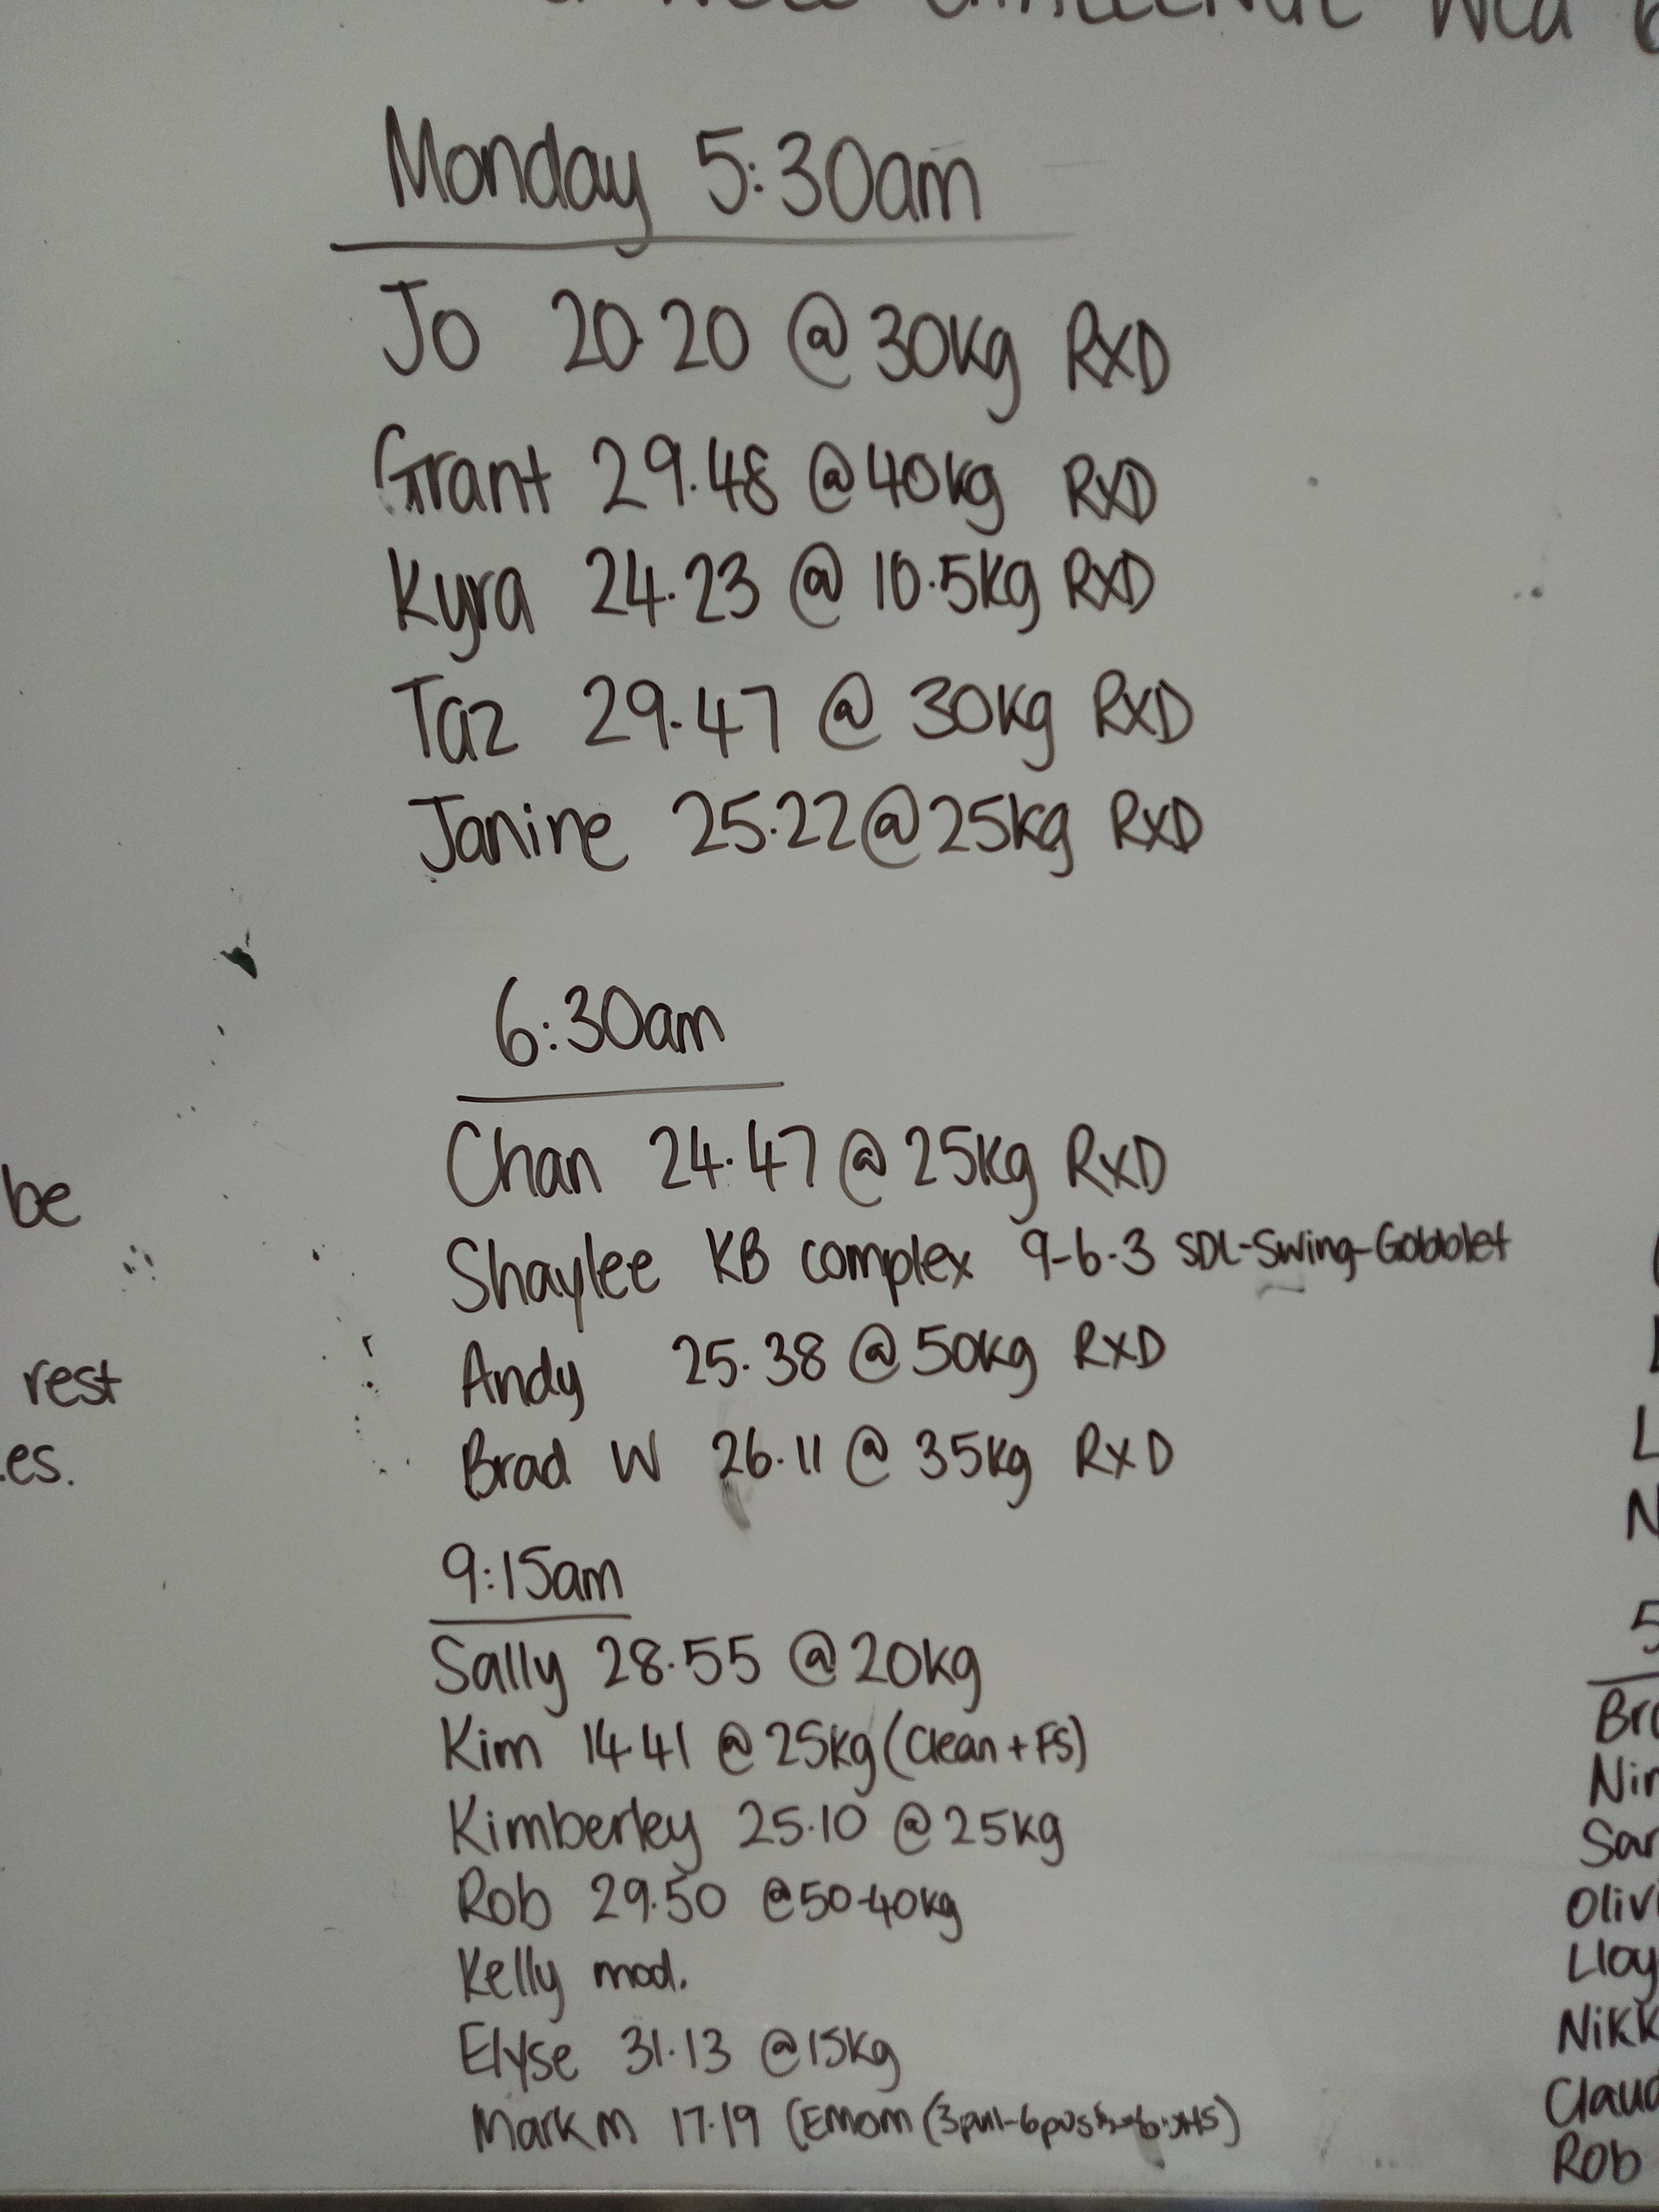 CHALLENGE Wed
Monday 5:30am
Jo 20.20 @ 30kg RXD
Grant 29.48 @ 40kg RXD
Kyra 24.23 @ 10.5kg RXD
Taz 29.47 @ 30kg RXD
Janine 25.22 @ 25kg RXD
6:30am
Chan 24.47 @ 25kg RXD
Shaylee KB complex 9-6-3 SDL-Swing-Gobblet
Andy 25.38 @ 50kg RXD
Brad W 26.11 @ 35kg RXD
9:15am
Sally 28.55 @ 20kg
Kim 14.41 @ 25kg (Clean + FS)
Kimberley 25.10 @ 25kg
Rob 29.50 @ 50-40kg
Kelly mod.
Elyse 31.13 @ 15kg
Mark M 17.19 (EMOM (3pull-6push-
be
rest
es.
5
Bro
Nin
Sar
Olivi
Lloy
Nikk
Claud
Rob